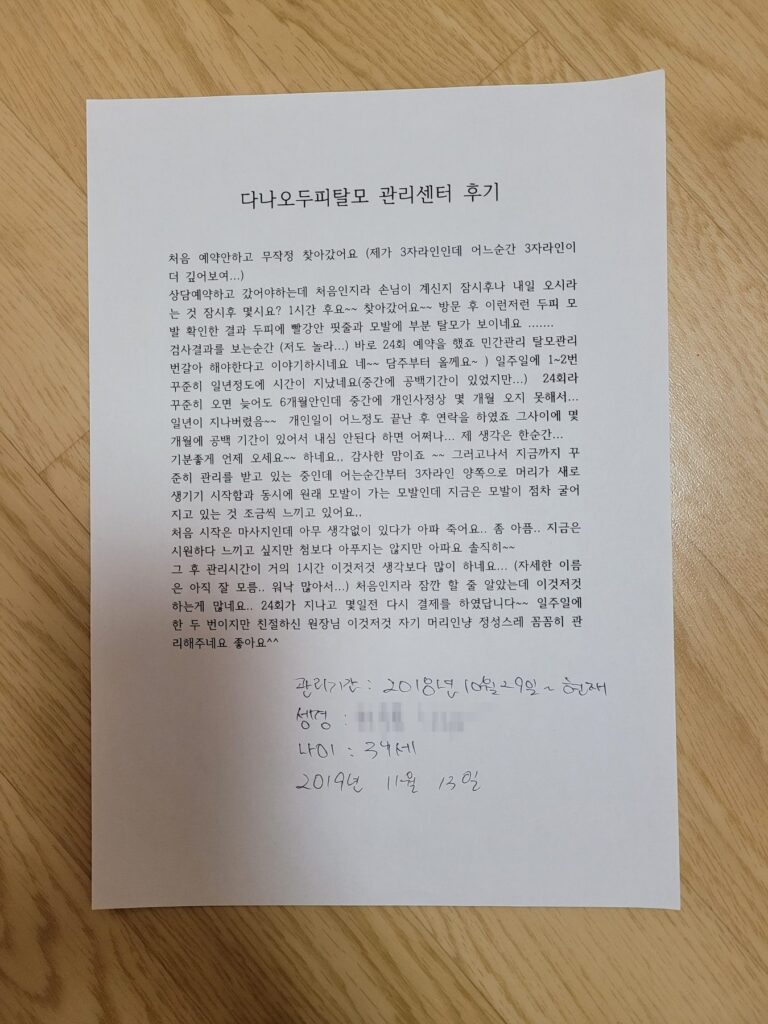 다나오두피탈모 관리센터 후기
처음 예약안하고 무작정 찾아갔어요 (제가 3자라인인데 어느순간 3자라인이
더 깊어보여...)
상담예약하고 갔어야하는데 처음인지라 손님이 계신지 잠시후나 내일 오시라
는 것 잠시후 몇시요? 1시간 후요~~ 찾아갔어요~~ 방문 후 이런저런 두피 모
발 확인한 결과 두피에 빨강안 핏줄과 모발에 부분 탈모가 보이네요 .......
검사결과를 보는순간 (저도 놀라...) 바로 24회 예약을 했죠 민간관리 탈모관리
번갈아 해야한다고 이야기하시네요 네~~ 담주부터 올께요~ ) 일주일에 1~2번
꾸준히 일년정도에 시간이 지났네요(중간에 공백기간이 있었지만...) 24회라
꾸준히 오면 늦어도 6개월안인데 중간에 개인사정상 몇 개월 오지 못해서...
일년이 지나버렸음~~ 개인일이 어느정도 끝난 후 연락을 하였죠 그사이에 몇
개월에 공백 기간이 있어서 내심 안된다 하면 어쩌나... 제 생각은 한순간...
기분좋게 언제 오세요~~ 하네요.. 감사한 맘이죠 ~~ 그러고나서 지금까지 꾸
준히 관리를 받고 있는 중인데 어는순간부터 3자라인 양쪽으로 머리가 새로
생기기 시작함과 동시에 원래 모발이 가는 모발인데 지금은 모발이 점차 굵어
지고 있는 것 조금씩 느끼고 있어요..
처음 시작은 마사지인데 아무 생각없이 있다가 아파 죽어요.. 좀 아픔.. 지금은
시원하다 느끼고 싶지만 첨보다 아푸지는 않지만 아파요 솔직히~~
그 후 관리시간이 거의 1시간 이것저것 생각보다 많이 하네요... (자세한 이름
은 아직 잘 모름.. 워낙 많아서...) 처음인지라 잠깐 할 줄 알았는데 이것저것
하는게 많네요.. 24회가 지나고 몇일전 다시 결제를 하였답니다~~ 일주일에
한 두 번이지만 친절하신 원장님 이것저것 자기 머리인냥 정성스레 꼼꼼히 관
리해주네요 좋아요^^
관리기간 : 2018년 10월 29일 ~ 현재
성명 :
나이 : 34세
2019년 11월 13일